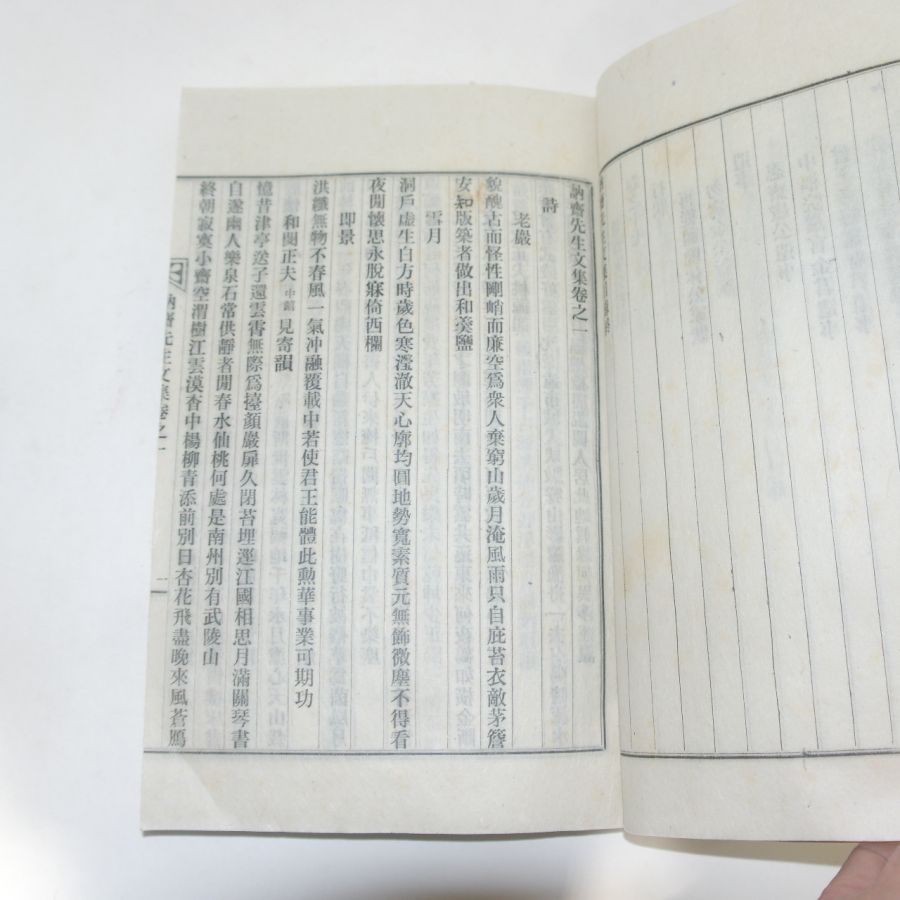 訥齋先生文集卷之一
詩
老巖
貌醜古而怪性剛峭而廉空爲衆人棄窮山歲月淹風雨只自庇苔衣敵茅簷
安知版築者做出和羹鹽
雪月
洞戶虛生白方時歲色寒瀅澈天心廓均圓地勢寬素質元無飾微塵不得看
夜閒懷思永脫寐倚西欄
即景
洪纖無物不春風一氣冲融覆載中若使君王能體此勲華事業可期功
和閔正夫 中 見寄韻
憶昔津亭送子還雲霄無際爲擡顔嚴扉久閉苔埋逕江國相思月滿關琴書
自遂幽人樂泉石常供靜者閒春水仙桃何處是南州別有武陵山
終朝寂寞小齋空渭樹江雲漠杳中楊柳靑添前別日杏花飛盡晚來風蒼鴈
訥齋先生文集卷之一
一